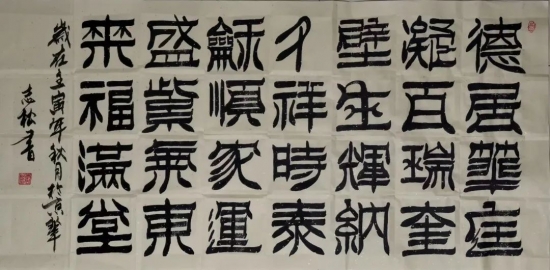 德居華庭
凝百瑞奎
壁生輝納
千祥時泰
龢順家運
盛紫氣東
來福滿堂
歲在壬寅年秋月於京華
志松書